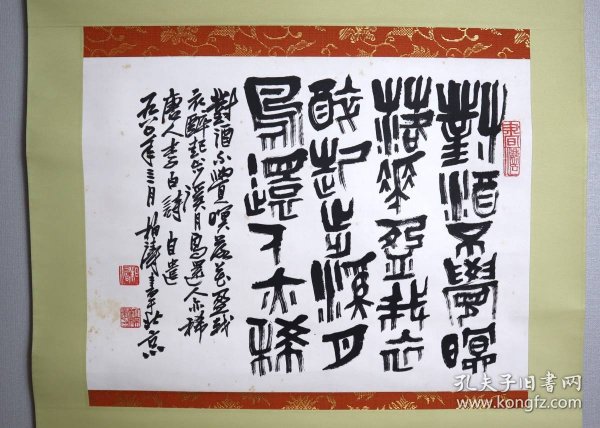 對酒不覺暝
落花盈我衣
醉起步溪月
鳥還人亦稀
對酒不覺暝落花盈我
衣醉起步溪月鳥還人亦稀
唐人李白詩 自遣
一九八〇年三月 柏濤書于北京
孔夫子旧书网
www.kongfz.com